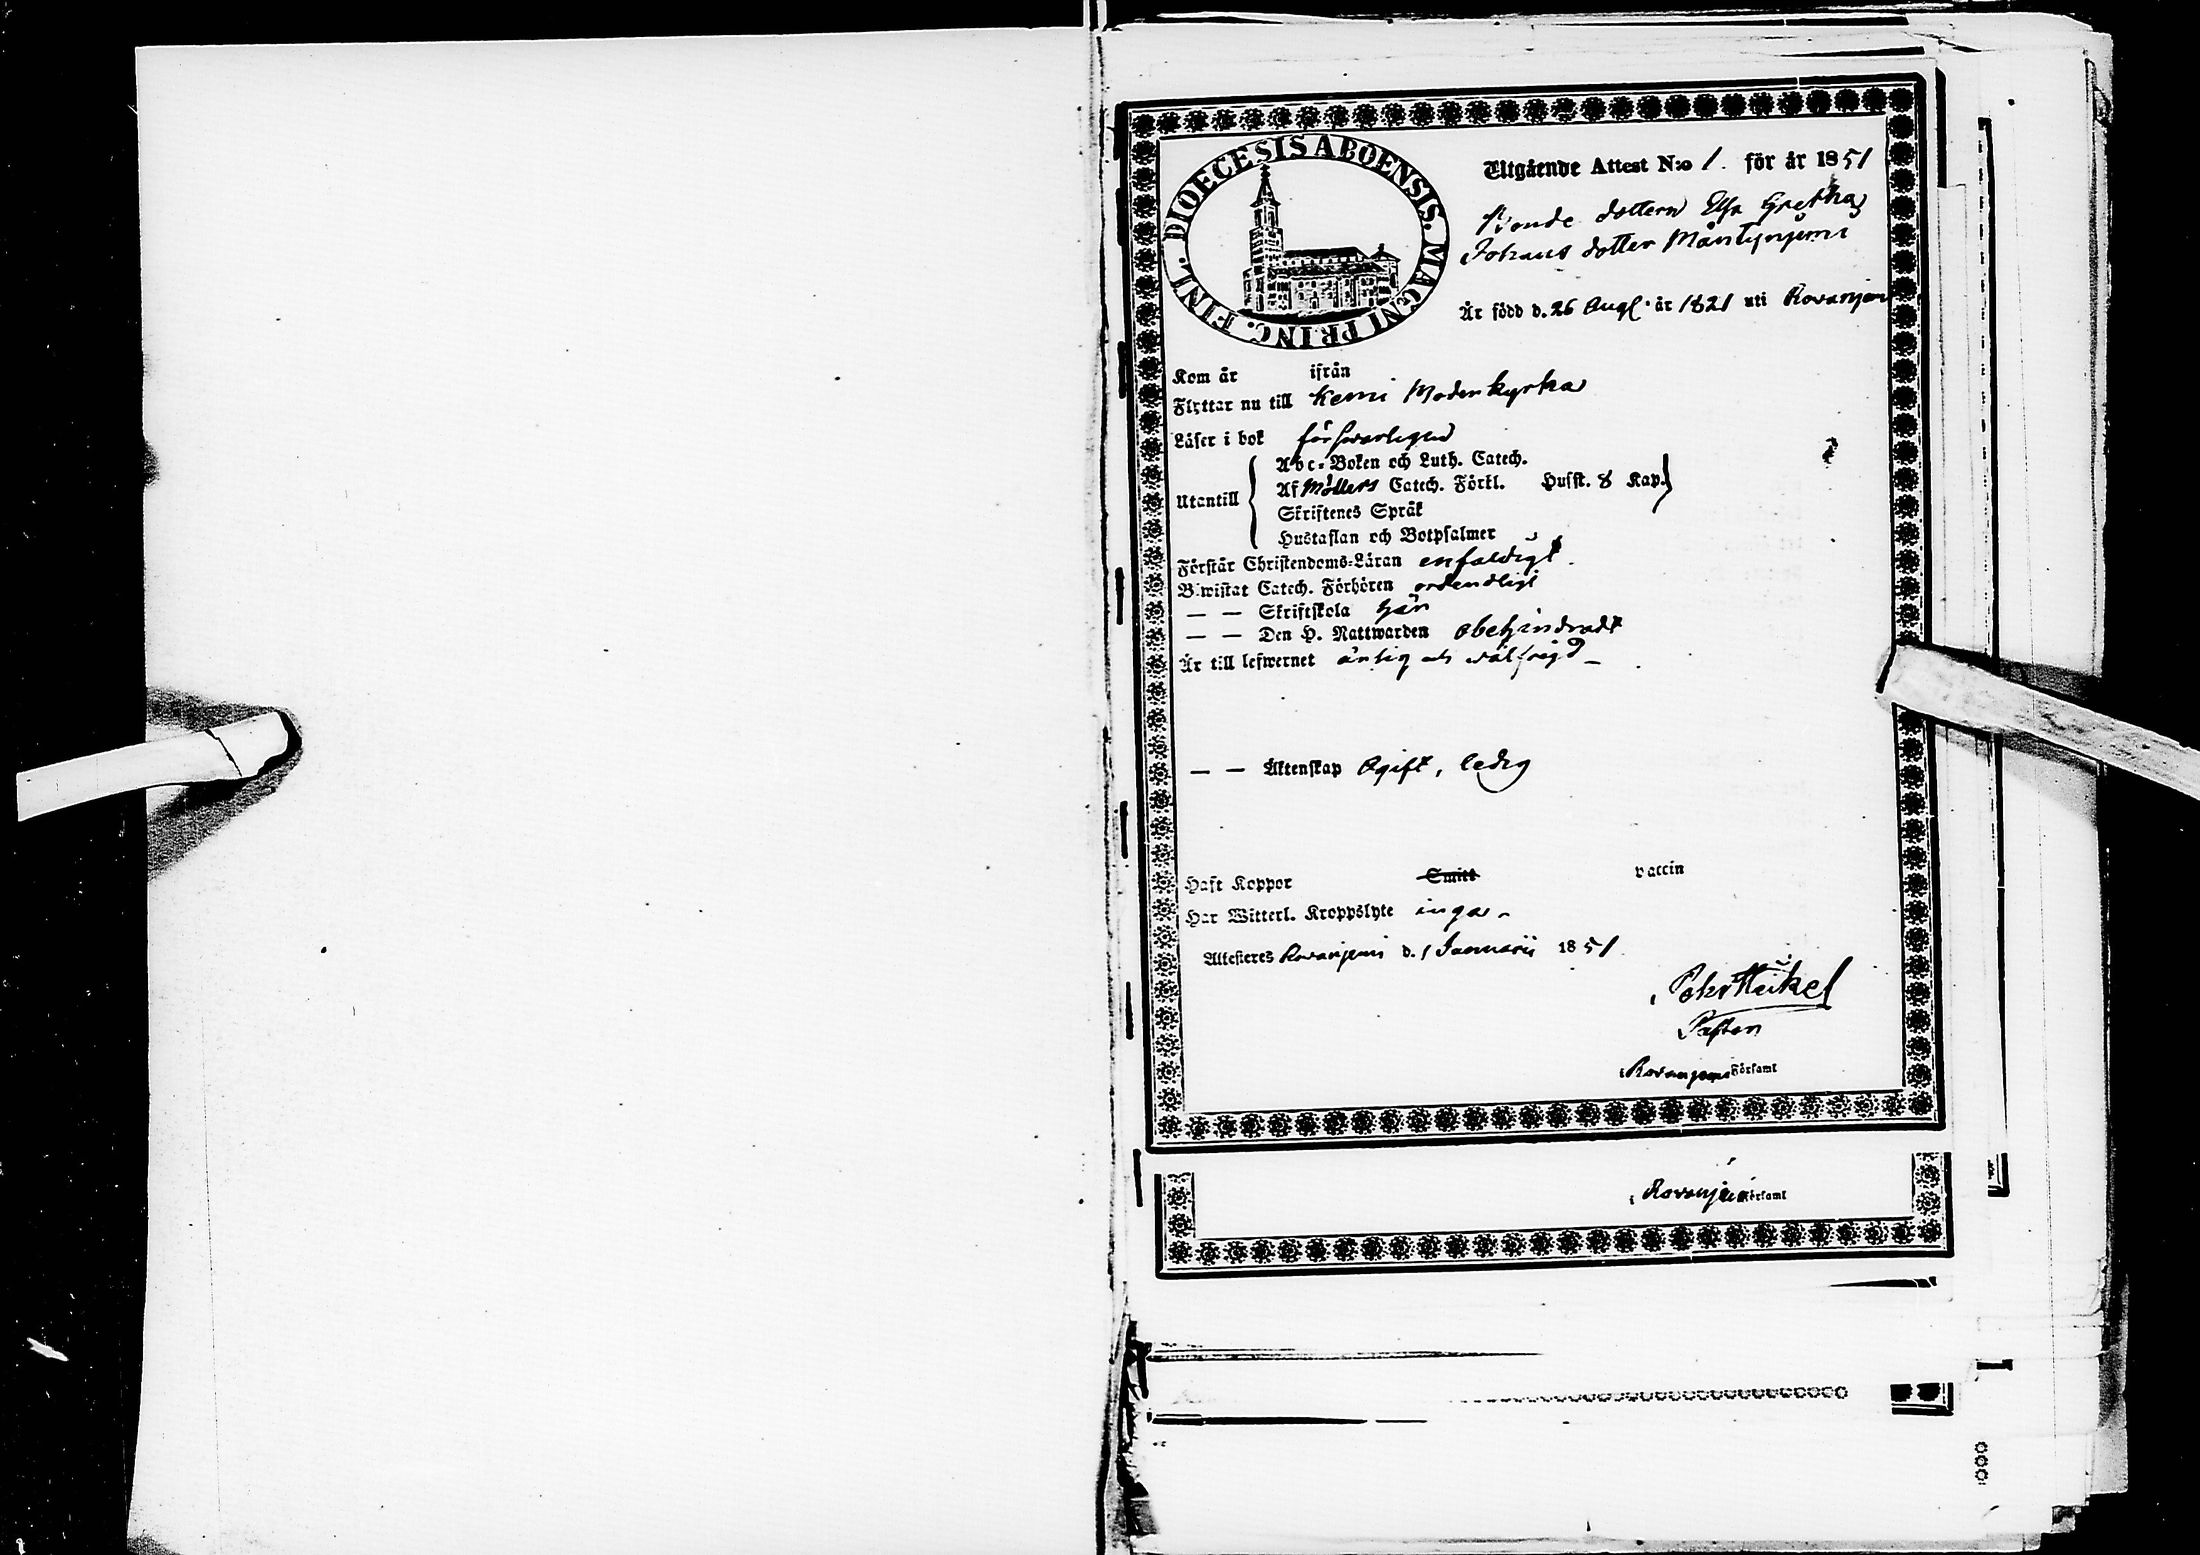 DIOECESIS ABOENSIS. MAGNI PRINC. FINL.
Utgående Attest N:o 1. för år 1851
Bonde dottern Elsa Gretha
Johans dotter Mäntyniemi
Är född d. 26 Aug. år 1821 uti Rovaniemi
Kom år ifrån
Flyttar nu till Kemi Moderkyrka
Läser i bok försvarligen
Abc-Boken och Luth. Catech.
Utantill
Af Möllers Catech. Förkl. Husst. 8 Kap.
Skriftenes Språk
Hustaflan och Botpsalmer
Förstår Christendoms-Läran enfaldigt.
Biwistat Catech. Förhören ordendligt
— — Skriftskola här
— — Den H. Nattwarden obehindradt
Är till lefwernet ärlig och välfrejd
— — Äktenskap Ogift, ledig
Haft Koppor Smitt vaccin
Har Witterl. Kroppslyte inga
Attesteres Rovaniemi d. 1 Januarii 1851.
Pastor
i Rovaniemi Församl
i Rovaniemi Församl